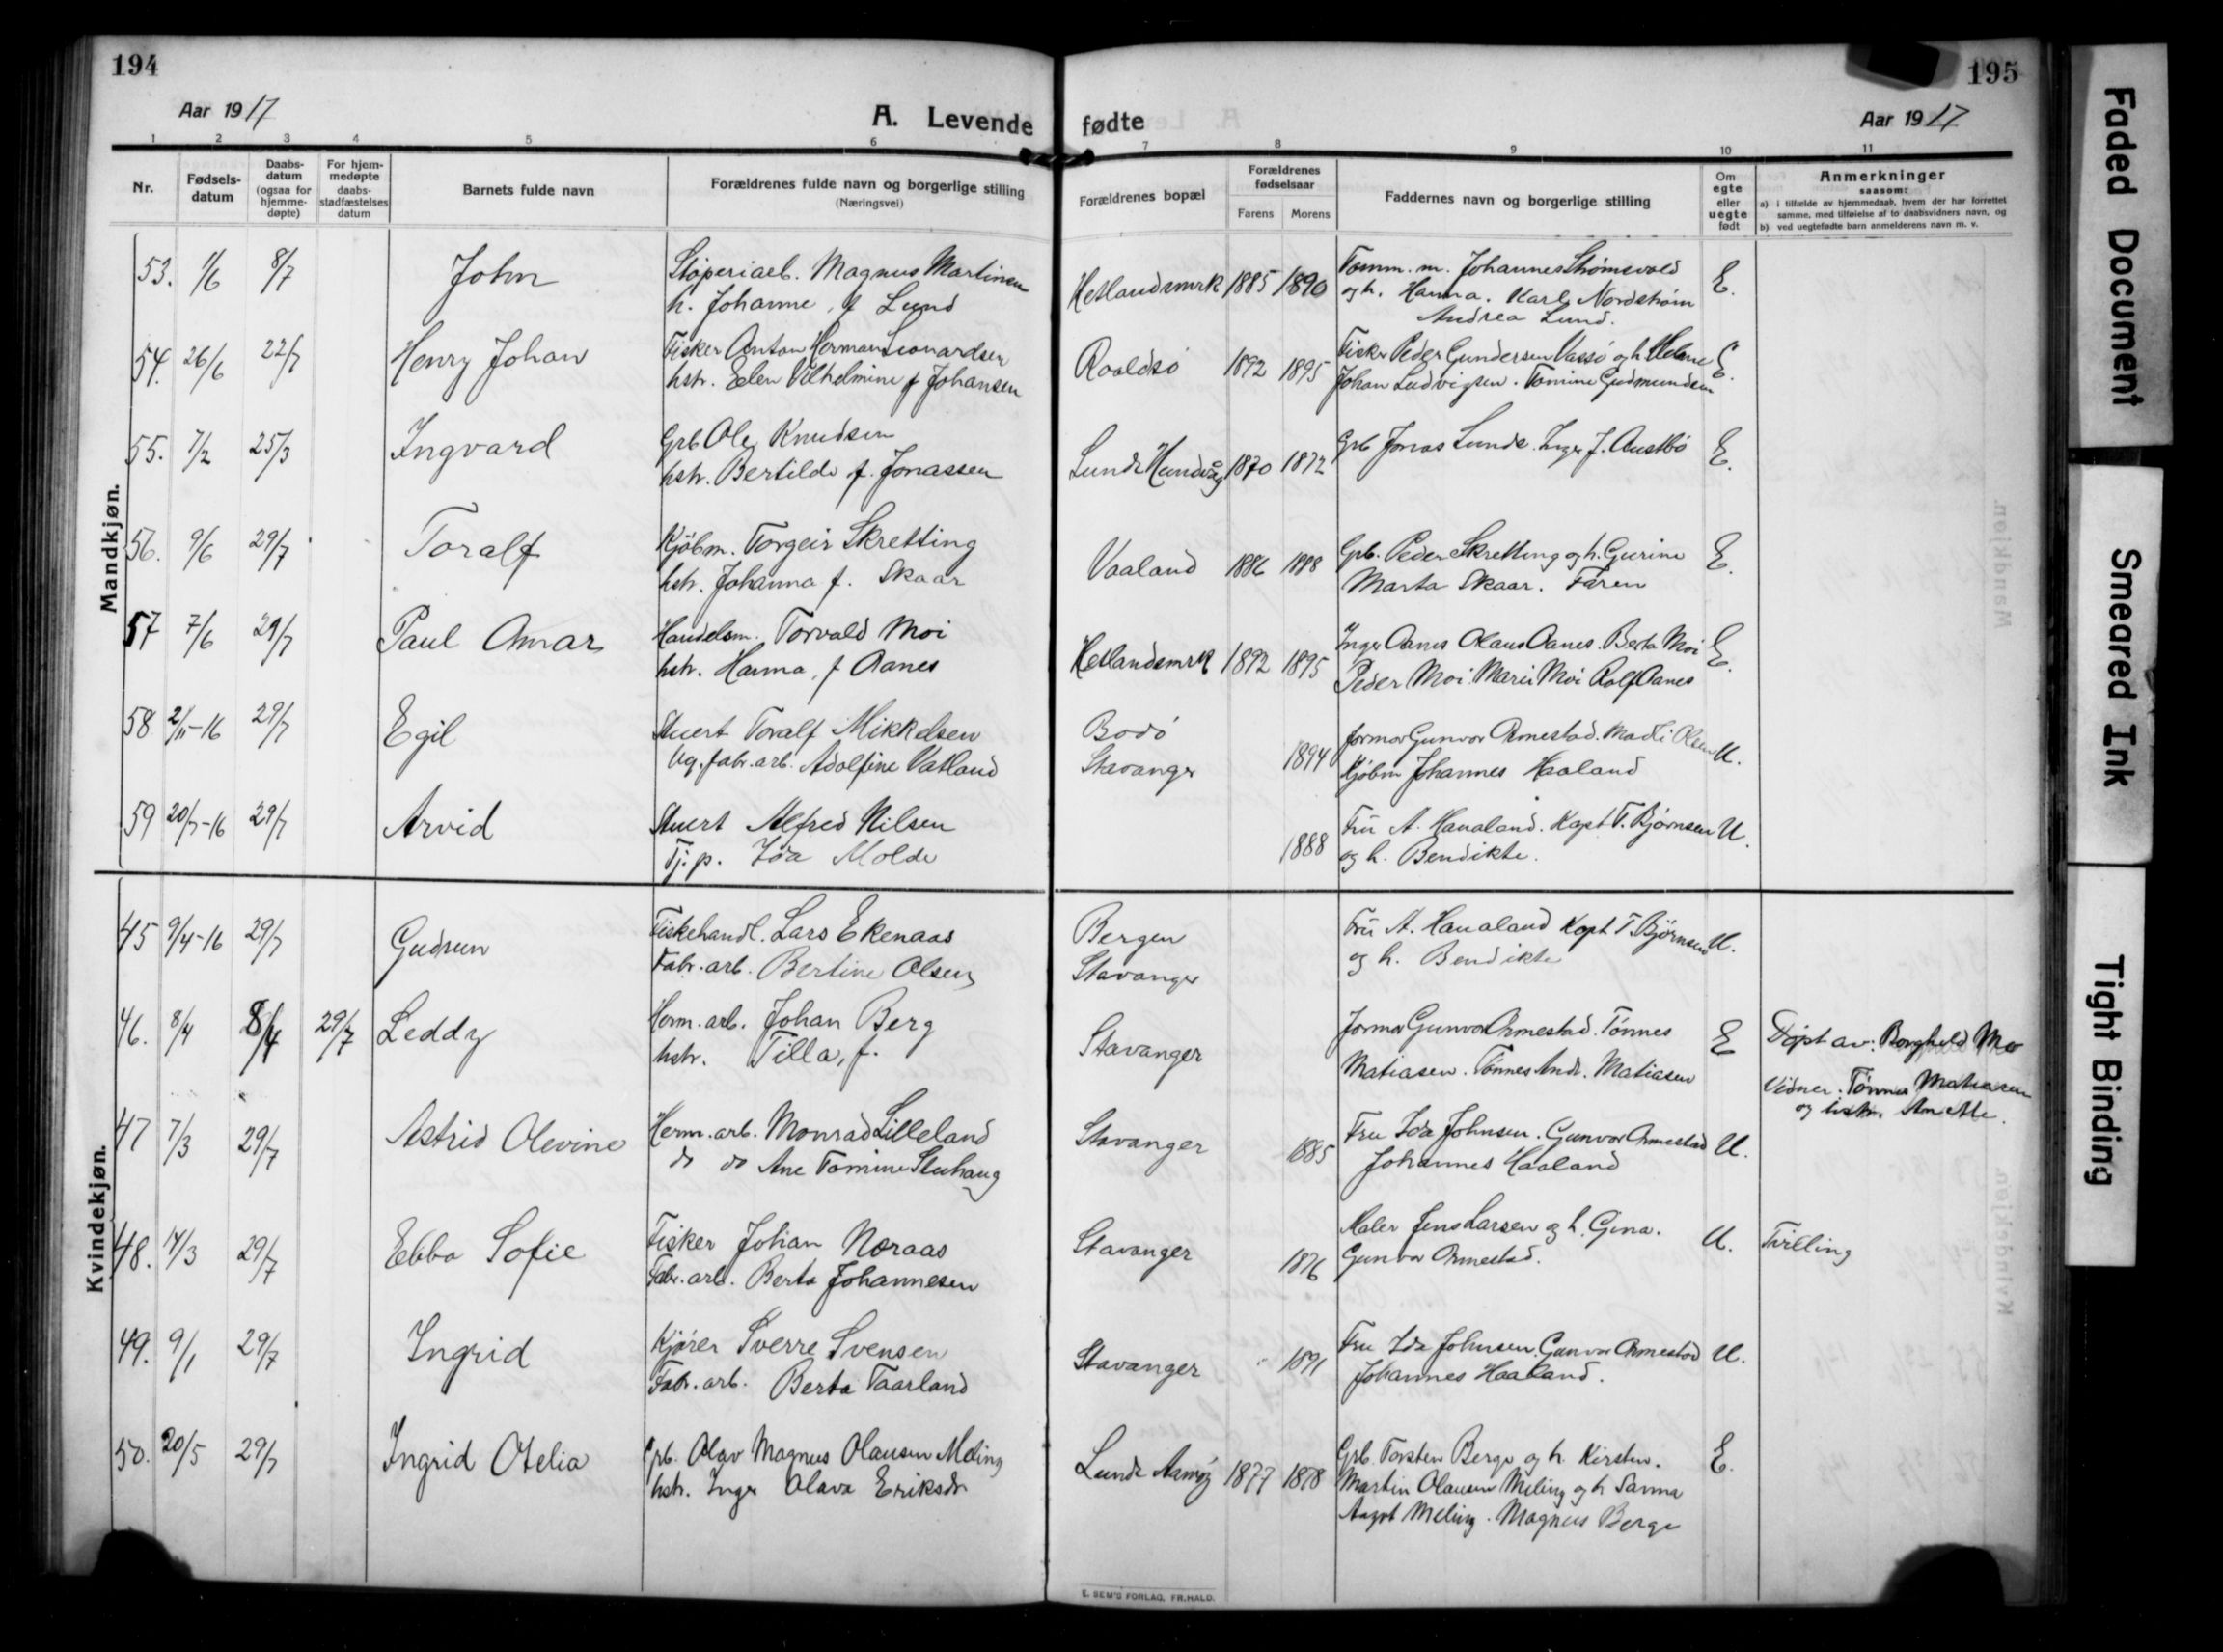 194
Aar 1917
A. Levende
fødte
Aar 1917
195
1 2 3 4 5 6 7 8 9 10 11
Nr.
Fødsels-
datum
Daabs-
datum
(ogsaa for
hjemme-
døpte)
For hjem-
medøpte
daabs-
stadfæstelses
datum
Barnets fulde navn
Forældrenes fulde navn og borgerlige stilling
(Næringsvei)
Forældrenes bopæl
Forældrenes
fødselsaar
Farens Morens
Faddernes navn og borgerlige stilling
Om
egte
eller
uegte
født
Anmerkninger
saasom:
a) i tilfælde av hjemmedaab, hvem der har forrettet
samme, med tilføielse af to daabsvidners navn, og
b) ved uegtefødte barn anmelderens navn m. v.
Mandkjøn.
53. 1/6 8/7 John Støperiaeb. Magnus Martinsen Hetlandsmrk 1885 1890 Tømm. m. Johannes Strømsvold E.
h. Johanne, f Lund og h. Hanna. Karl Nordstrøm
Andrea Lund.
54. 26/6 22/7 Henry Johan Fisker Anton Herman Leonardsen Roaldsø 1892 1895 Fisker Peder Gundersen Vassø og h. Helene E.
hstr. Elen Vilhelmine f Johansen Johan Ludvigsen. Tomine Gudmundsen
55. 7/2 25/3 Ingvard Grb Ole Knudsen Lunde Hundvåg 1870 1872 Grb Jonas Lunde. Inger J. Austbø E.
hstr. Bertilde f. Jonassen
56. 9/6 29/7 Toralf Kjøbm. Torgeir Skretting Vaaland 1886 1898 Grb. Peder Skretting og h. Gurine E.
hstr. Johanna f. Skaar Marta Skaar. Faren
57 7/6 29/7 Paul Omar Handelsm. Torvald Moi Hetlandsmrk 1892 1895 Inger Aanes Olaus Aanes. Berta Moi E.
hstr. Hanna, f Aanes Peder Moi. Marie Moi Rolf Aanes
58 2/11-16 29/7 Egil Stuert Toralf Mikkelsen Bodø 1894 Jormor Gunvor Ormestad. Madli Olsen U.
Ug. fabr. arb. Adolfine Vatland Stavanger Kjøbm Johannes Haaland
59 20/7-16 29/7 Arvid Stuert Alfred Nilsen 1888 Fru A. Haualand. Kapt T. Bjørnsen U.
Tj. p. Ida Molde og h. Bendikte.
Kvindekjøn.
45 9/4-16 29/7 Gudrun Fiskehandl. Lars Ekenaas Bergen Fru A. Haualand Kapt T. Bjørnsen U.
Fabr. arb. Bertine Olsen Stavanger og h. Bendikte
46. 8/4 8/4 29/7 Leddy Herm. arb. Johan Berg Stavanger Jormor Gunvor Ormestad. Tønnes E Døpt av: Borghild Mo
hstr. Tilla, f. Matiasen. Tønnes Andr. Matiasen Vidner: Tønnes Matiasen
og hstr. Anette.
47 7/3 29/7 Astrid Olevine Herm. arb. Monrad Lilleland Stavanger 1885 Fru Ida Johnsen. Gunvor Ormestad U.
do do Ane Tomine Stuhaug Johannes Haaland
48. 14/3 29/7 Ebba Sofie Fisker Johan Noraas Stavanger 1876 Maler Jens Larsen og h. Gina. U. Tvilling
Fabr. arb. Berta Johannesen Gunvor Ormestad.
49. 9/1 29/7 Ingrid Kjører Sverre Svensen Stavanger 1891 Fru Ida Johnsen. Gunvor Ormestad U.
Fabr. arb. Berta Taarland Johannes Haaland.
50. 20/5 29/7 Ingrid Otelia Grb. Olav Magnus Olausen Meling Lunde Aamøy 1877 1878 Grb. Torsten Berge og h. Kirsten. E.
hstr. Inger Olava Eriksdr Martin Olausen Meling og h Sanna
Meling. Magnus Berge
E. SEM'S FORLAG, FR.HALD.
Faded Document
Smeared Ink
Tight Binding